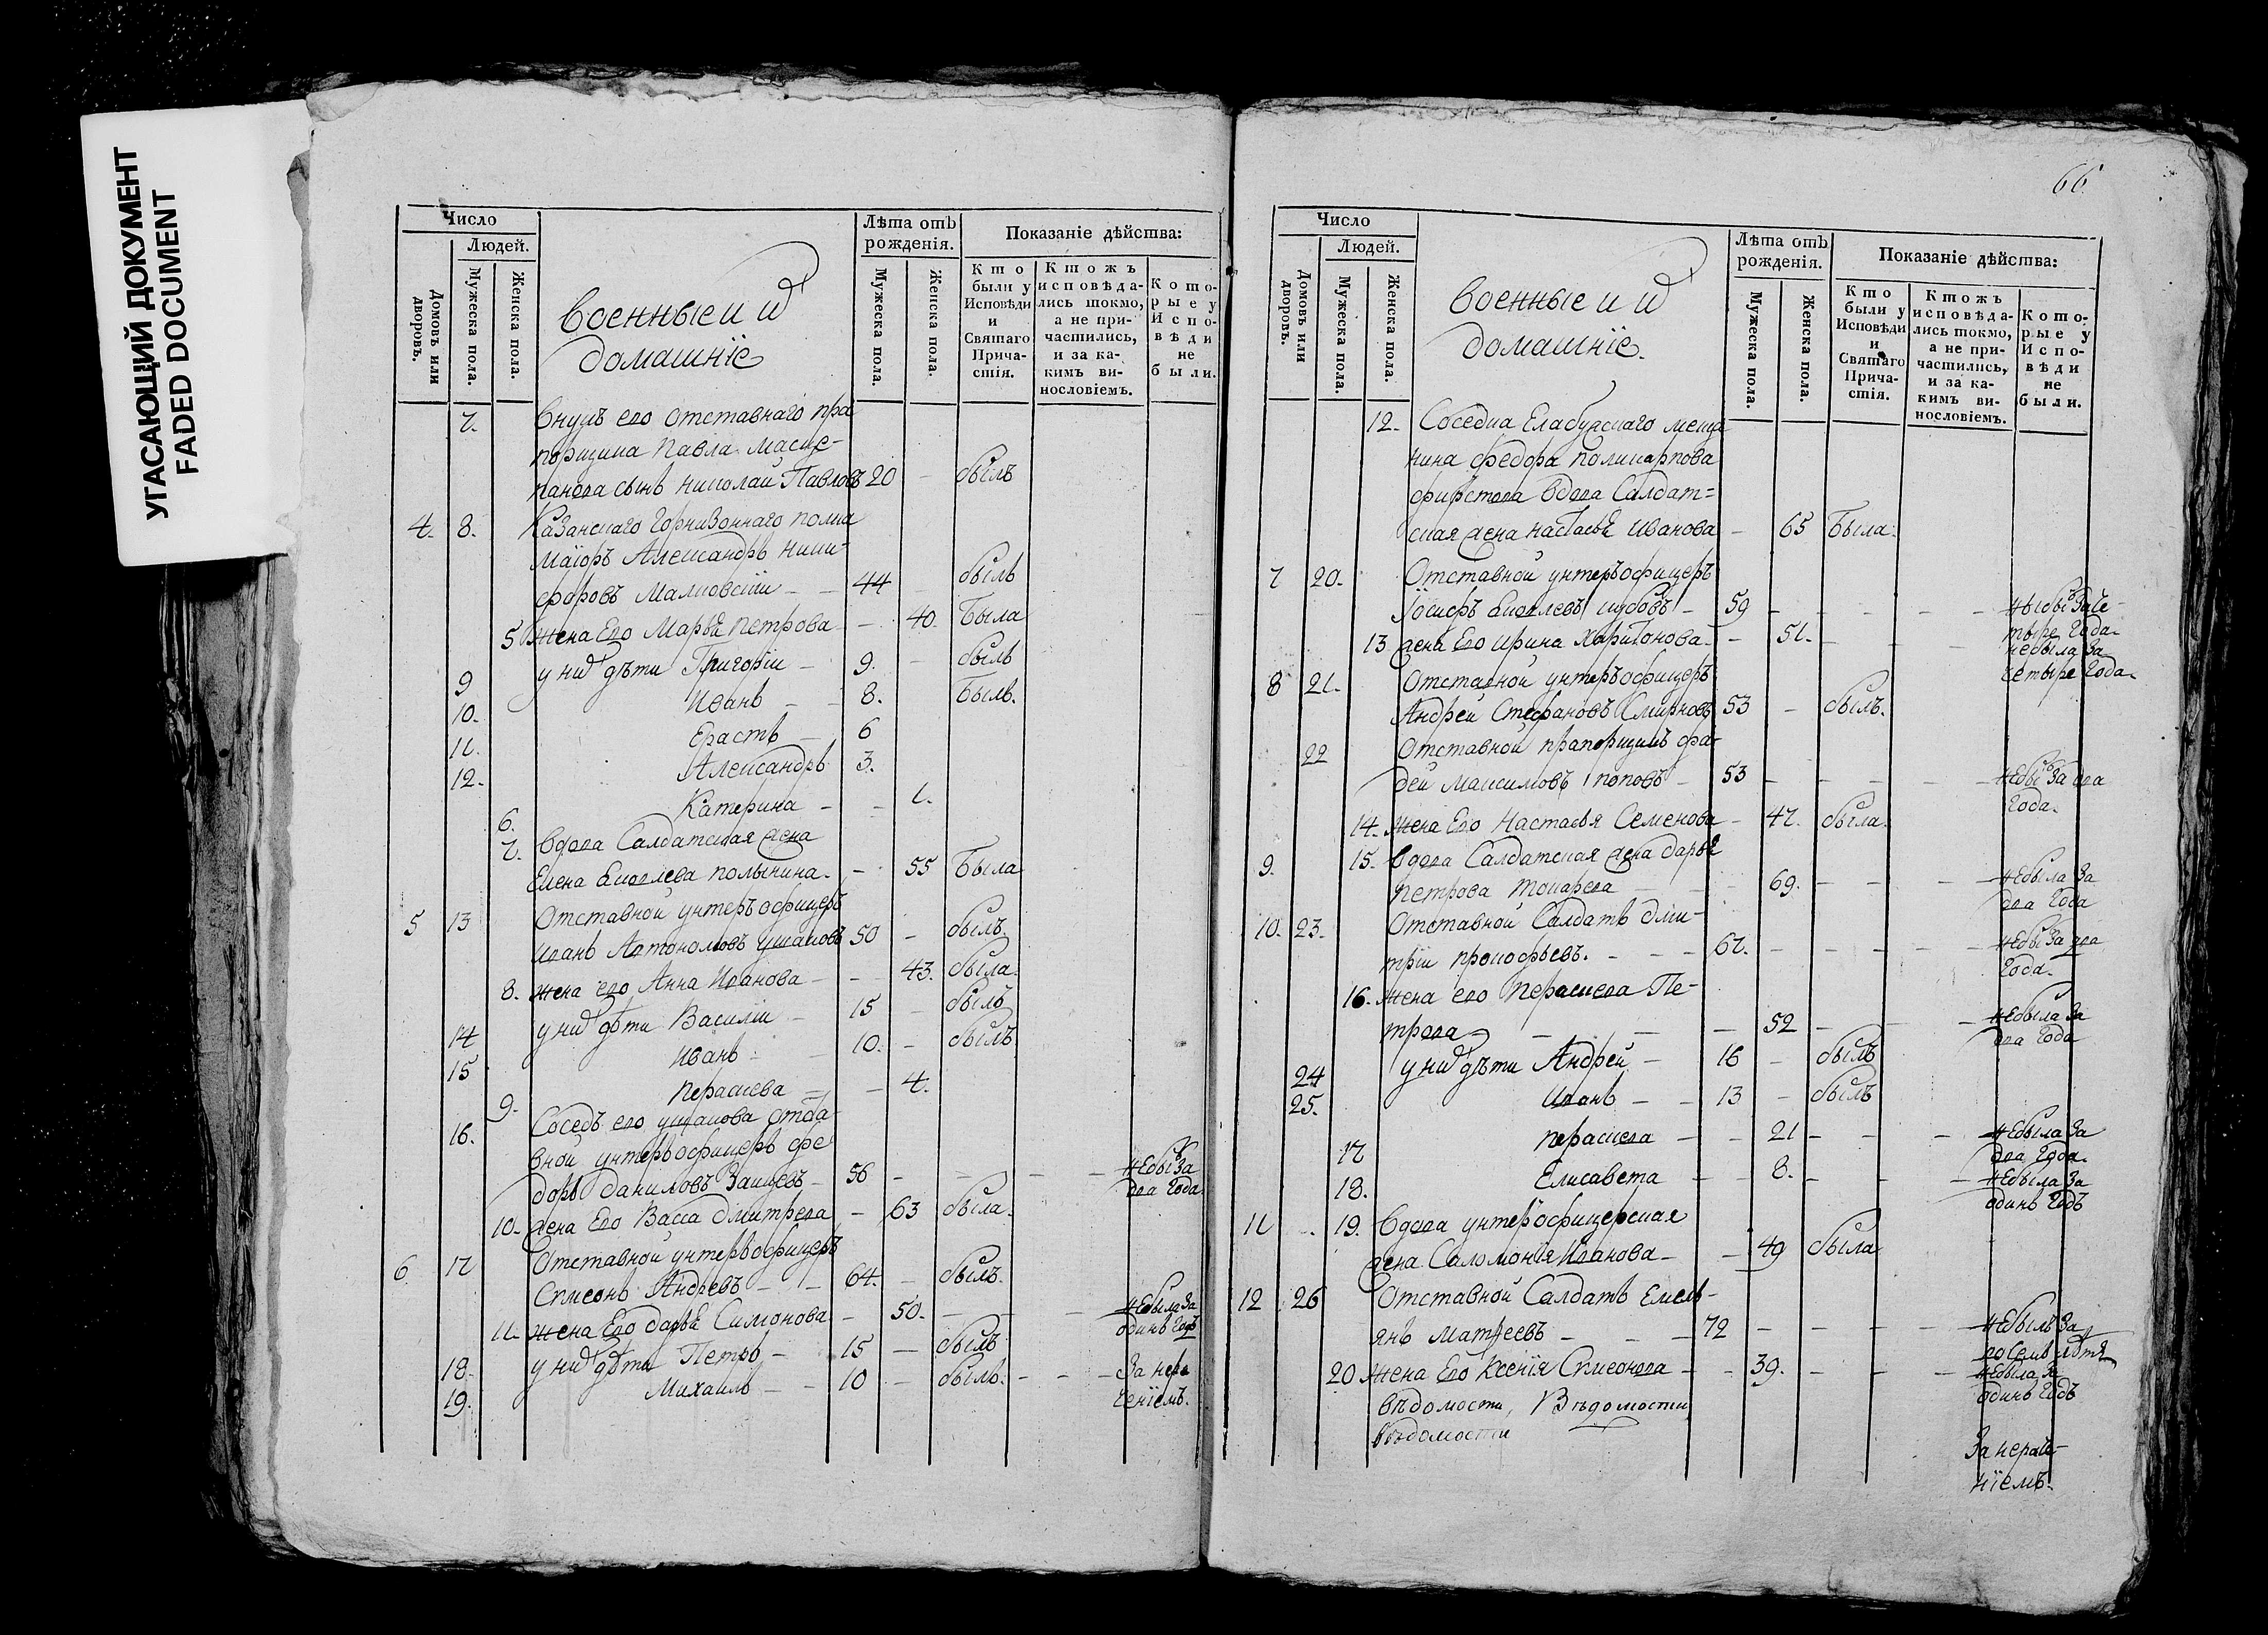 УГАСАЮЩИЙ ДОКУМЕНТ
FADED DOCUMENT
Число
Людей.
Домовъ или дворовъ.
Мужеска пола.
Женска пола.
военные и
домашніе
Лѣта отъ рожденія.
Мужеска пола.
Женска пола.
Показаніе дѣйства:
Кто были у Исповѣди и Святаго Причастія.
Ктожъ исповѣдались токмо, а не причастились, и за какимъ винословіемъ.
Которые у Исповѣди не были.
7. внукъ его отставнаго пра
порщика Павла
сынъ николай Павловъ 20 - былъ
4. 8. Казанскаго горнизоннаго полка
маіоръ Александръ ники-
форовъ Малковскій - - 44 - былъ
5 жена Его Марья петрова - - 40. Была
9 у них дѣти Григорій - 9. - былъ
10. Иванъ - - 8. Былъ.
11. Ерастъ - 6
12. Александръ 3.
6. Катерина - - 1.
7. вдова Салдатская жена
Елена Яковлева полынина. - 55 Была
5 13 Отставной унтеръ офицеръ
иванъ Автономовъ ушаковъ 50 - былъ.
8. жена его Анна Иванова - - 43. была.
14 у них дѣти Василій - 15 - былъ
15 иванъ - - 10. - былъ
9. перасковa - - 4.
16. Соседъ его ушакова отста
вной унтеръофицеръ фе
доръ даниловъ Заицевъ - 56 - - - - - небылъ за
два года.
10. жена Его Васса дмитрева - 63 была.
6 17 Отставной унтеръофицеръ
Симеонъ Андреевъ - - 64. - былъ.
11. жена Его дарья Симонова - 50. - - - небыла за
одинъ годъ
18. у них дѣти Петръ - 15 - былъ
19. Михаилъ - - 10 - былъ. - - - За нера
ченіемъ.
66
Число
Людей.
Домовъ или дворовъ.
Мужеска пола.
Женска пола.
военные и
домашніе.
Лѣта отъ рожденія.
Мужеска пола.
Женска пола.
Показаніе дѣйства:
Кто были у Исповѣди и Святаго Причастія.
Ктожъ исповѣдались токмо, а не причастились, и за какимъ винословіемъ.
Которые у Исповѣди не были.
12. Соседка Елабужскаго меща
нина федора поликарпова
вдова Салдат=
ская жена настасья иванова - 65 Была.
7 20. Отставной унтеръофицеръ
Іосифъ Яковлевъ - 59 - - - - - небылъ за че-
тыре года.
13 жена Его ирина харитонова. - 51. - - - небыла за
четыре года.
8 21. Отставной унтеръофицеръ
Андрей Стефановъ Смирновъ 53 - былъ.
22 Отставной прапорщикъ фа-
дей максимовъ поповъ - 53 - - - - - небылъ за два
года.
14. жена Его Настасья Семенова - 47. была.
9. 15. вдова Салдатская жена дарья
петрова токарева - - - 69. - - - - небыла за
два года
10. 23. Отставной Салдатъ дми-
трій прокофьевъ. - - - 67. - - - - - небылъ за два
года.
16. жена его перасковa Пе-
трова - - - - 52 - - - небыла за
два года
24 у них дѣти Андрей - 16 - былъ
25. иванъ - - 13 - былъ
17 перасковa - - 21 - - - небыла за
два года.
18. Елисавета - - 8. - - - небыла за
одинъ годъ
11 19. вдова унтеръофицерская
жена Саломонія иванова - - 49 была
12 26 Отставной Салдатъ Емель-
янъ матфеевъ - - - 72 - - - - - небылъ за
20 жена Его ксенія Симеонова - - 39. - - - небыла за
одинъ годъ
вѣдомости, Вѣдомости
вѣдомости
За нераче-
ніемъ.